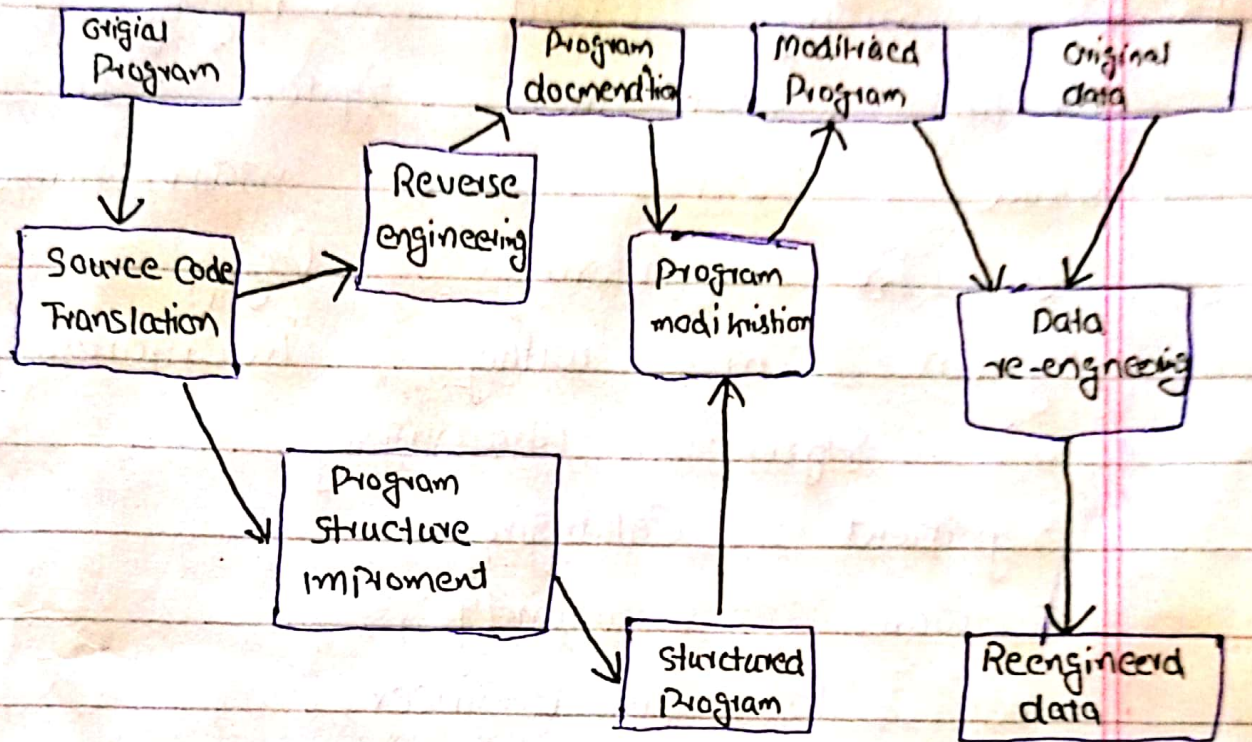 Origial
Program
Program
docmendtion
Modified
Program
Original
data
Reverse
engineering
Source Code
Translation
Program
Data
re-engneering
Program
Structure
improment
Sturctured
Program
Reengineerd
data